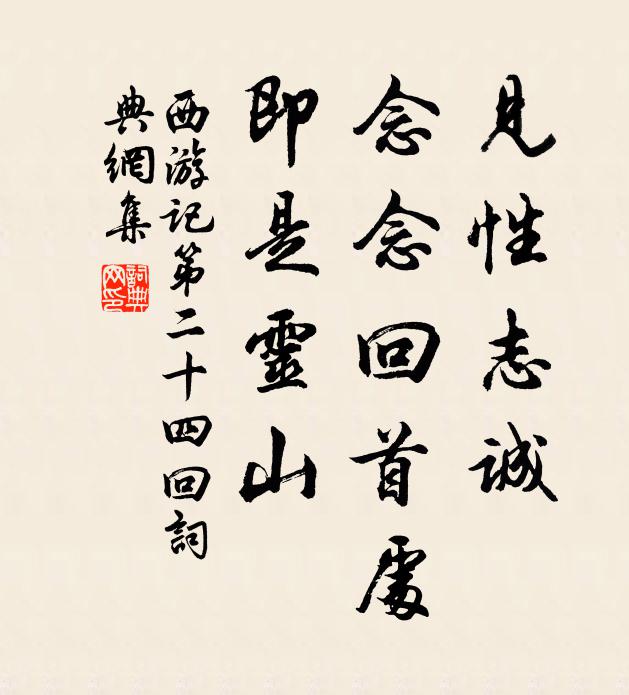 見性志誠
念念回首處
即是靈山
西游记第二十四回詞
典網集
詞典
网印